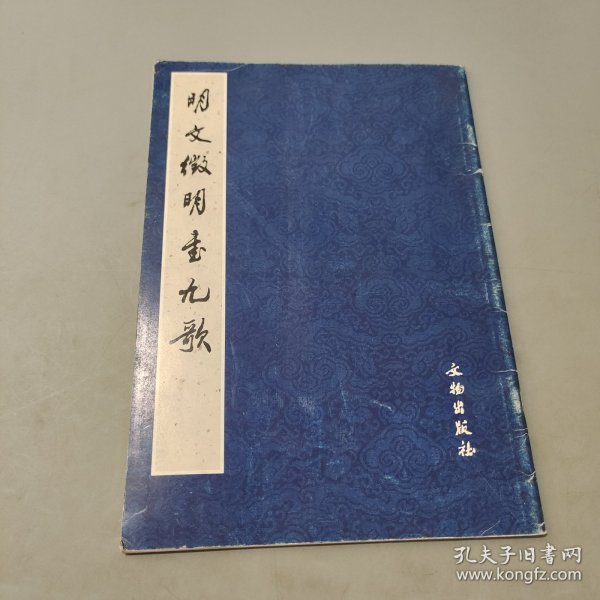 明文徵明书九歌
文物出版社
孔夫子旧书网
www.kongfz.com